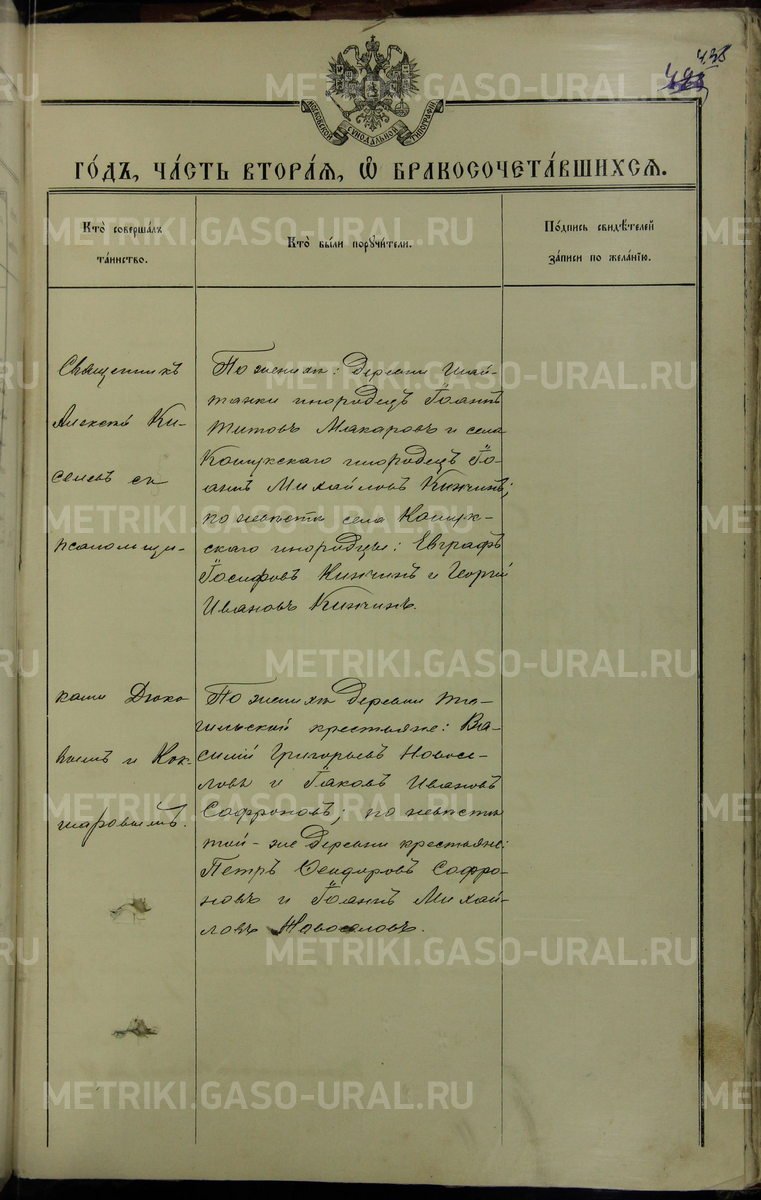 438
МОСКОВСКОЙ СѴНОДАЛЬНОЙ ТИПОГРАФІИ
ГО́ДЪ, ЧА́СТЬ ВТОРА́Я, Ѡ БРАКОСОЧЕТА́ВШИХСЯ.
Кто̀ соверша́лъ
та́инство.
Кто̀ бы́ли порꙋчи́тели.
По́дпись свидѣ́телей
за́писи по жела́нїю.
Священникъ
Алексѣй Ки-
селевъ съ
псаломщи-
ками Дюко
вымъ и Кок-
шаровымъ.
По женихѣ: деревни Шай-
танки инородецъ Іоаннъ
Титовъ Макаровъ и села
Кошукскаго инородецъ Іо-
аннъ Михайловъ Кинчинъ;
по невѣстѣ села Кошук-
скаго инородцы: Евграфъ
Іосифовъ Кинчинъ и Георгій
Ивановъ Кинчинъ.
По женихѣ деревни Та-
гильской крестьяне: Ва-
силій Григорьевъ Новосе-
ловъ и Іаковъ Ивановъ
Софроновъ; по невѣстѣ
той-же деревни крестьяне:
Петръ Ѳеодоровъ Софро-
новъ и Іоаннъ Михай-
ловъ Новоселовъ.
METRIKI.GASO-URAL.RU